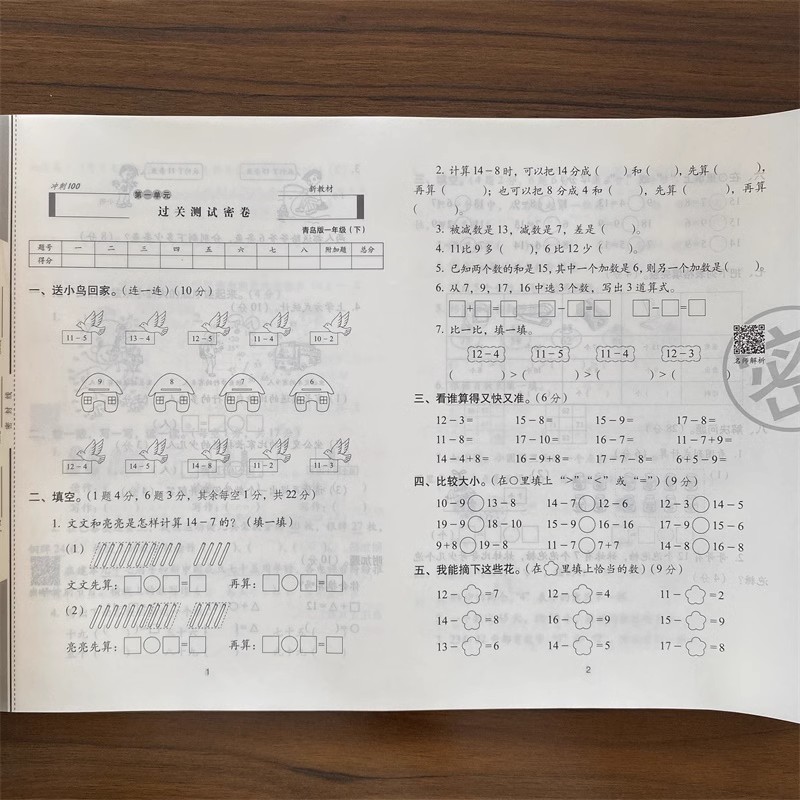 冲刺100
第一单元
新教材
过关测试密卷
青岛版一年级（下）
题号 一 二 三 四 五 六 七 八 附加题 总分
得分
一、送小鸟回家。（连一连）（10分）
11-5 13-4 12-5 11-4 10-2
9 8 7 6
12-4 14-5 14-8 11-2 11-3
二、填空。（1题4分，6题3分，其余每空1分，共22分）
1. 文文和亮亮是怎样计算14-7的？（填一填）
（1）
文文先算：□○□=□ 再算：□○□=□
（2）
亮亮先算：□○□=□ 再算：□○□=□
1
2. 计算14-8时，可以把14分成（ ）和（ ），先算（ ），
再算（ ）；也可以把8分成4和（ ），先算（ ），再算
（ ）。
3. 被减数是13，减数是7，差是（ ）。
4. 11比9多（ ），6比12少（ ）。
5. 已知两个数的和是15，其中一个加数是6，则另一个加数是（ ）。
6. 从7，9，17，16中选3个数，写出3道算式。
□+□=□ □-□=□ □-□=□
7. 比一比，填一填。
12-4 11-5 11-4 12-3
（ ）＞（ ）＞（ ）＞（ ）
名师解析
密
密封线
三、看谁算得又快又准。（6分）
12-3= 15-8= 15-9= 17-8=
11-8= 17-10= 16-7= 11-7+9=
14-4+8= 16-9+8= 17-7-8= 6+5-9=
四、比较大小。（在○里填上“>”“<”或“=”）（9分）
10-9○13-8 14-7○12-6 12-3○14-5
19-9○18-10 15-9○16-16 17-9○15-6
9+8○19-8 11-7○7+7 14-8○16-8
五、我能摘下这些花。（在 里填上恰当的数）（9分）
12- =7 12- =4 11- =2
14- =8 16- =9 15- =9
13- =6 14- =5 17- =8
2